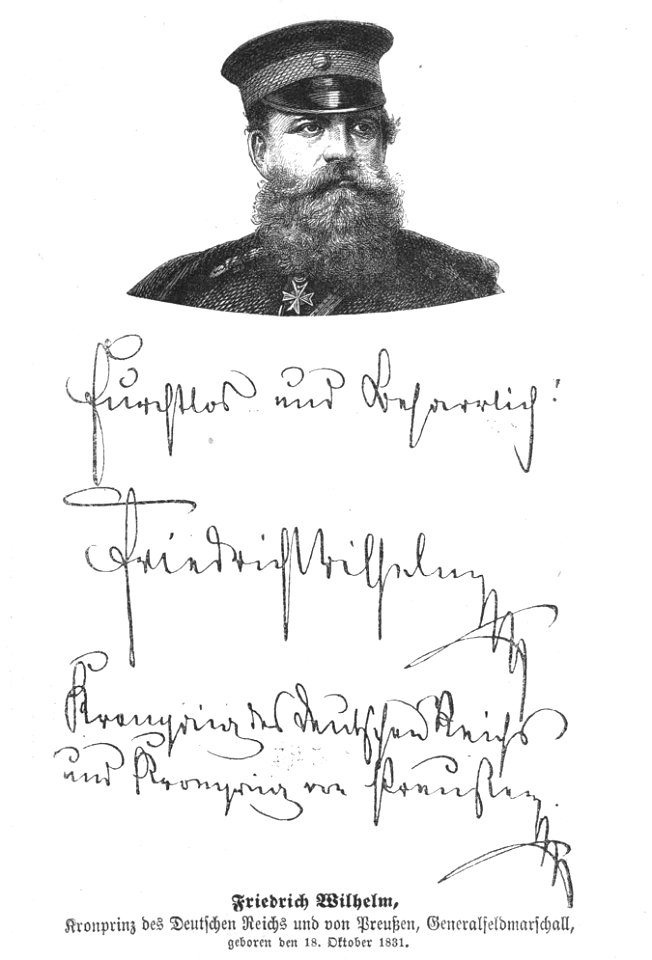 Furchtlos und Beharrlich!
Friedrich Wilhelm
Kronprinz des Deutschen Reichs
und Kronprinz von Preußen.
Friedrich Wilhelm,
Kronprinz des Deutschen Reichs und von Preußen, Generalfeldmarschall,
geboren den 18. Oktober 1831.